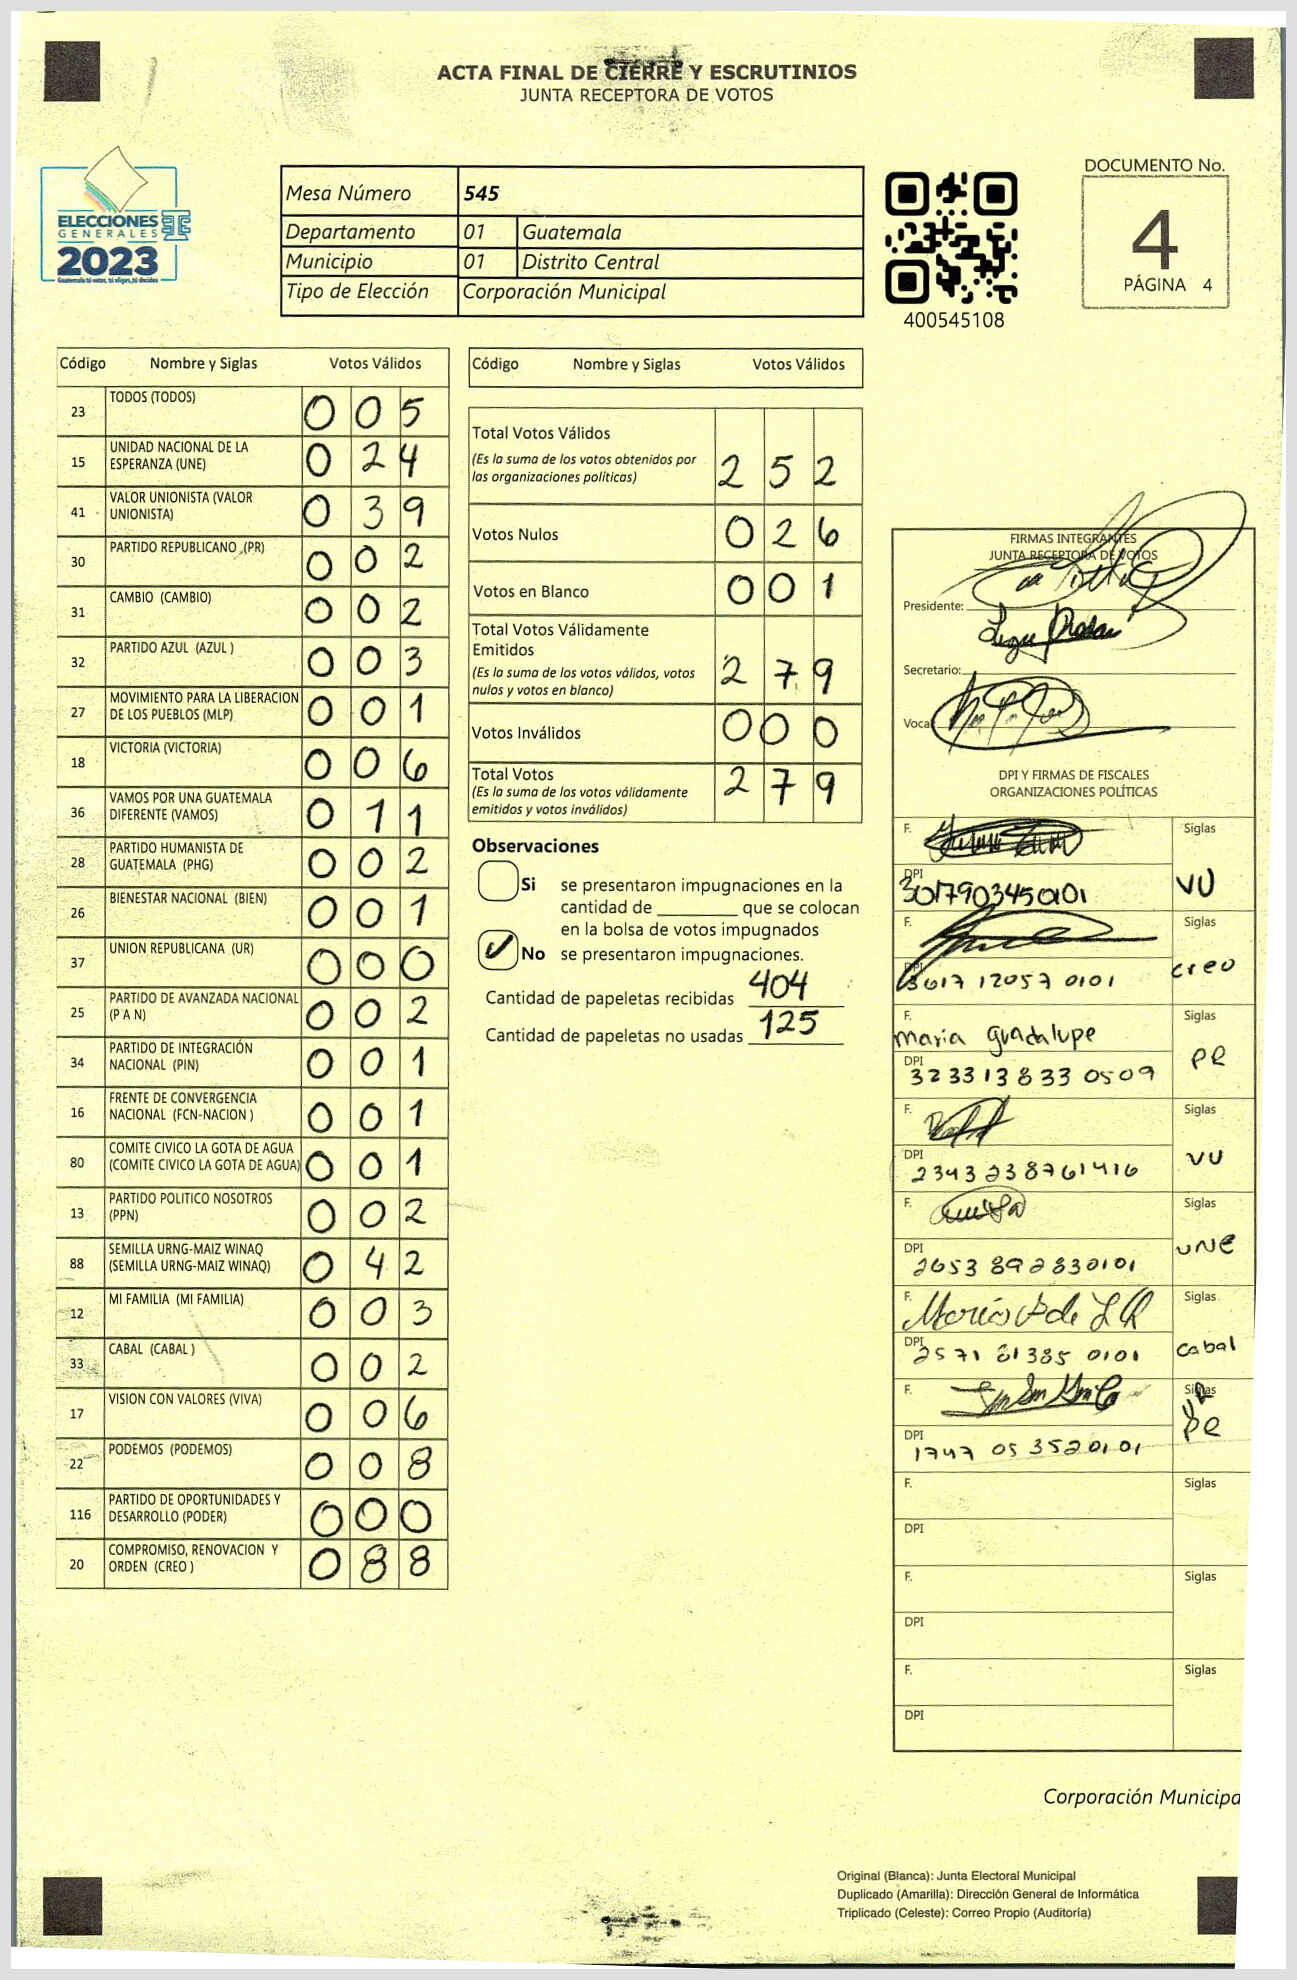 ACTA FINAL DE CIERRE Y ESCRUTINIOS
JUNTA RECEPTORA DE VOTOS
ELECCIONES
GENERALES
2023
Guatemala tú votas, tú eliges, tú decides
Mesa Número 545
Departamento 01 Guatemala
Municipio 01 Distrito Central
Tipo de Elección Corporación Municipal
400545108
DOCUMENTO No.
4
PÁGINA 4
Código Nombre y Siglas Votos Válidos
23 TODOS (TODOS) 0 0 5
15 UNIDAD NACIONAL DE LA ESPERANZA (UNE) 0 2 4
41 VALOR UNIONISTA (VALOR UNIONISTA) 0 3 9
30 PARTIDO REPUBLICANO (PR) 0 0 2
31 CAMBIO (CAMBIO) 0 0 2
32 PARTIDO AZUL (AZUL ) 0 0 3
27 MOVIMIENTO PARA LA LIBERACION DE LOS PUEBLOS (MLP) 0 0 1
18 VICTORIA (VICTORIA) 0 0 6
36 VAMOS POR UNA GUATEMALA DIFERENTE (VAMOS) 0 1 1
28 PARTIDO HUMANISTA DE GUATEMALA (PHG) 0 0 2
26 BIENESTAR NACIONAL (BIEN) 0 0 1
37 UNION REPUBLICANA (UR) 0 0 0
25 PARTIDO DE AVANZADA NACIONAL (P A N) 0 0 2
34 PARTIDO DE INTEGRACIÓN NACIONAL (PIN) 0 0 1
16 FRENTE DE CONVERGENCIA NACIONAL (FCN-NACION ) 0 0 1
80 COMITE CIVICO LA GOTA DE AGUA (COMITE CIVICO LA GOTA DE AGUA) 0 0 1
13 PARTIDO POLITICO NOSOTROS (PPN) 0 0 2
88 SEMILLA URNG-MAIZ WINAQ (SEMILLA URNG-MAIZ WINAQ) 0 4 2
12 MI FAMILIA (MI FAMILIA) 0 0 3
33 CABAL (CABAL ) 0 0 2
17 VISION CON VALORES (VIVA) 0 0 6
22 PODEMOS (PODEMOS) 0 0 8
116 PARTIDO DE OPORTUNIDADES Y DESARROLLO (PODER) 0 0 0
20 COMPROMISO, RENOVACION Y ORDEN (CREO ) 0 8 8
Código Nombre y Siglas Votos Válidos
Total Votos Válidos
(Es la suma de los votos obtenidos por
las organizaciones políticas) 2 5 2
Votos Nulos 0 2 6
Votos en Blanco 0 0 1
Total Votos Válidamente
Emitidos
(Es la suma de los votos válidos, votos
nulos y votos en blanco) 2 7 9
Votos Inválidos 0 0 0
Total Votos
(Es la suma de los votos válidamente
emitidos y votos inválidos) 2 7 9
Observaciones
Si se presentaron impugnaciones en la
cantidad de ________ que se colocan
en la bolsa de votos impugnados
No se presentaron impugnaciones.
Cantidad de papeletas recibidas 404
Cantidad de papeletas no usadas 125
FIRMAS INTEGRANTES
JUNTA RECEPTORA DE VOTOS
Presidente:
Secretario:
Vocal
DPI Y FIRMAS DE FISCALES
ORGANIZACIONES POLÍTICAS
F. Siglas
DPI 3017903450101 VU
F. Siglas
DPI 3617 12057 0101 creo
F. maria guadalupe Siglas
DPI 323313833 0509 PR
F. Siglas
DPI 2343238761416 VU
F. Siglas
DPI 2653 892830101 UNE
F. Siglas
DPI 2571 61385 0101 cabal
F. Siglas
DPI 1747 05 3520101 PR
F. Siglas
DPI
F. Siglas
DPI
F. Siglas
DPI
Corporación Municipa
Original (Blanca): Junta Electoral Municipal
Duplicado (Amarilla): Dirección General de Informática
Triplicado (Celeste): Correo Propio (Auditoría)